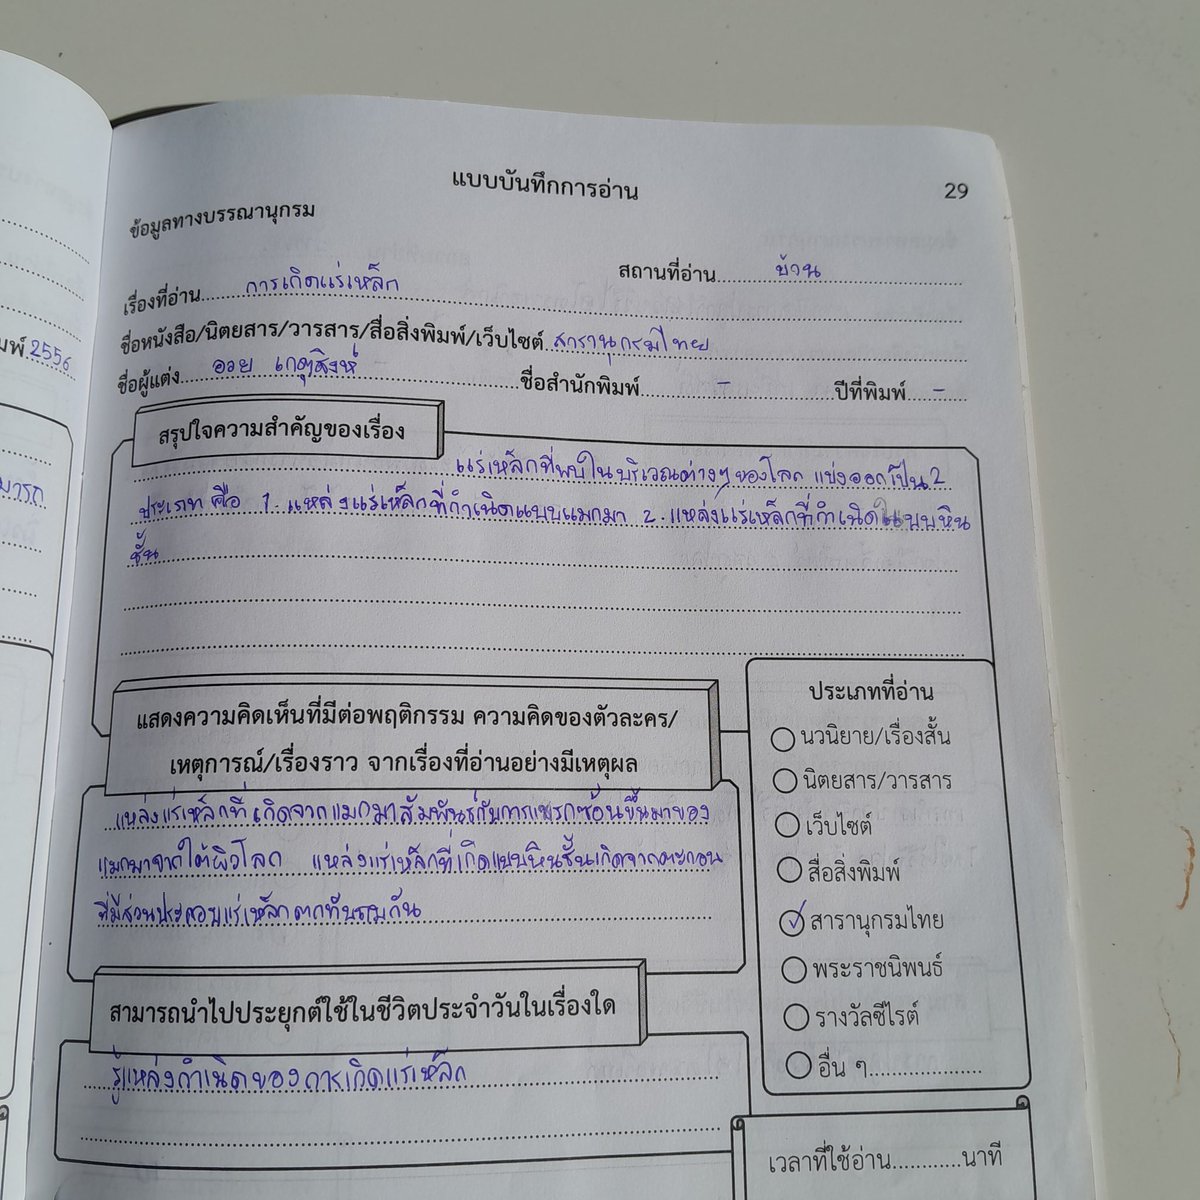 แบบบันทึกการอ่าน
29
ข้อมูลทางบรรณานุกรม
เรื่องที่อ่าน การเกิดแร่เหล็ก สถานที่อ่าน บ้าน
ชื่อหนังสือ/นิตยสาร/วารสาร/สื่อสิ่งพิมพ์/เว็บไซต์ สารานุกรมไทย
ชื่อผู้แต่ง อวย เกตุสิงห์ ชื่อสำนักพิมพ์ - ปีที่พิมพ์ -
สรุปใจความสำคัญของเรื่อง
แร่เหล็กที่พบในบริเวณต่างๆ ของโลก แบ่งออกเป็น 2
ประเภท คือ 1. แหล่งแร่เหล็กที่กำเนิดแบบแมกมา 2. แหล่งแร่เหล็กที่กำเนิดแบบหิน
ชั้น
แสดงความคิดเห็นที่มีต่อพฤติกรรม ความคิดของตัวละคร/
เหตุการณ์/เรื่องราว จากเรื่องที่อ่านอย่างมีเหตุผล
แหล่งแร่เหล็กที่เกิดจากแมกมาสัมพันธ์กับการแทรกซ้อนขึ้นมาของ
แมกมาจากใต้ผิวโลก แหล่งแร่เหล็กที่เกิดแบบหินชั้นเกิดจากตะกอน
ที่มีส่วนประกอบแร่เหล็กตกทับถมกัน
สามารถนำไปประยุกต์ใช้ในชีวิตประจำวันในเรื่องใด
รู้แหล่งกำเนิดของการเกิดแร่เหล็ก
ประเภทที่อ่าน
นวนิยาย/เรื่องสั้น
นิตยสาร/วารสาร
เว็บไซต์
สื่อสิ่งพิมพ์
สารานุกรมไทย
พระราชนิพนธ์
รางวัลซีไรต์
อื่น ๆ
เวลาที่ใช้อ่าน............นาที
2556